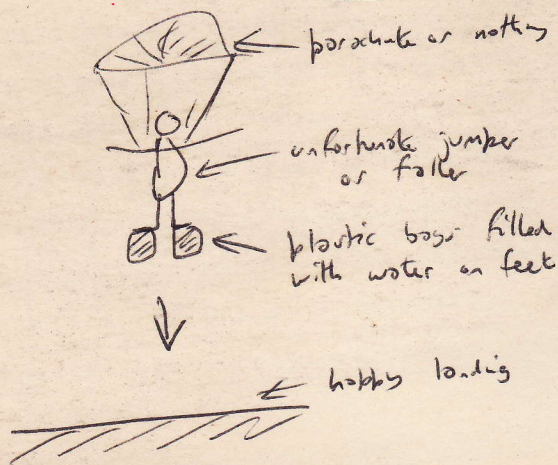 parachute or nothing
unfortunate jumper
or faller
plastic bags filled
with water on feet
happy landing